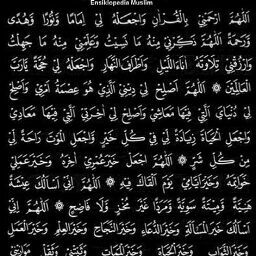 Ensiklopedia Muslim
اَللّٰهُمَّ ارْحَمْنِيْ بِالْقُرْاٰنِ وَاجْعَلْهُ لِيْ اِمَامًا وَنُوْرًا وَهُدًى
وَرَحْمَةً اَللّٰهُمَّ ذَكِّرْنِيْ مِنْهُ مَا نَسِيْتُ وَعَلِّمْنِيْ مِنْهُ مَا جَهِلْتُ
وَارْزُقْنِيْ تِلَاوَتَهُ اٰنَاءَ اللَّيْلِ وَاَطْرَافَ النَّهَارِ وَاجْعَلْهُ لِيْ حُجَّةً يَارَبَّ
الْعَالَمِيْنَ ۞ اَللّٰهُمَّ اَصْلِحْ لِيْ دِيْنِيَ الَّذِيْ هُوَ عِصْمَةُ اَمْرِيْ وَاَصْلِحْ
لِيْ دُنْيَايَ الَّتِيْ فِيْهَا مَعَاشِيْ وَاَصْلِحْ لِيْ اٰخِرَتِيَ الَّتِيْ فِيْهَا مَعَادِيْ
وَاجْعَلِ الْحَيَاةَ زِيَادَةً لِيْ فِيْ كُلِّ خَيْرٍ وَاجْعَلِ الْمَوْتَ رَاحَةً لِيْ
مِنْ كُلِّ شَرٍّ ۞ اَللّٰهُمَّ اجْعَلْ خَيْرَ عُمْرِيْ اٰخِرَهُ وَخَيْرَ عَمَلِيْ
خَوَاتِمَهُ وَخَيْرَ اَيَّامِيْ يَوْمَ اَلْقَاكَ فِيْهِ ۞ اَللّٰهُمَّ اِنِّيْ اَسْاَلُكَ عِيْشَةً
هَنِيَّةً وَمِيْتَةً سَوِيَّةً وَمَرَدًّا غَيْرَ مُخْزٍ وَلَا فَاضِحٍ ۞ اَللّٰهُمَّ اِنِّيْ
اَسْاَلُكَ خَيْرَ الْمَسْاَلَةِ وَخَيْرَ الدُّعَاءِ وَخَيْرَ النَّجَاحِ وَخَيْرَ الْعِلْمِ وَخَيْرَ الْعَمَلِ
وَخَيْرَ الثَّوَابِ وَخَيْرَ الْحَيَاةِ وَخَيْرَ الْمَمَاتِ وَثَبِّتْنِيْ وَثَقِّلْ مَوَازِيْنِيْ